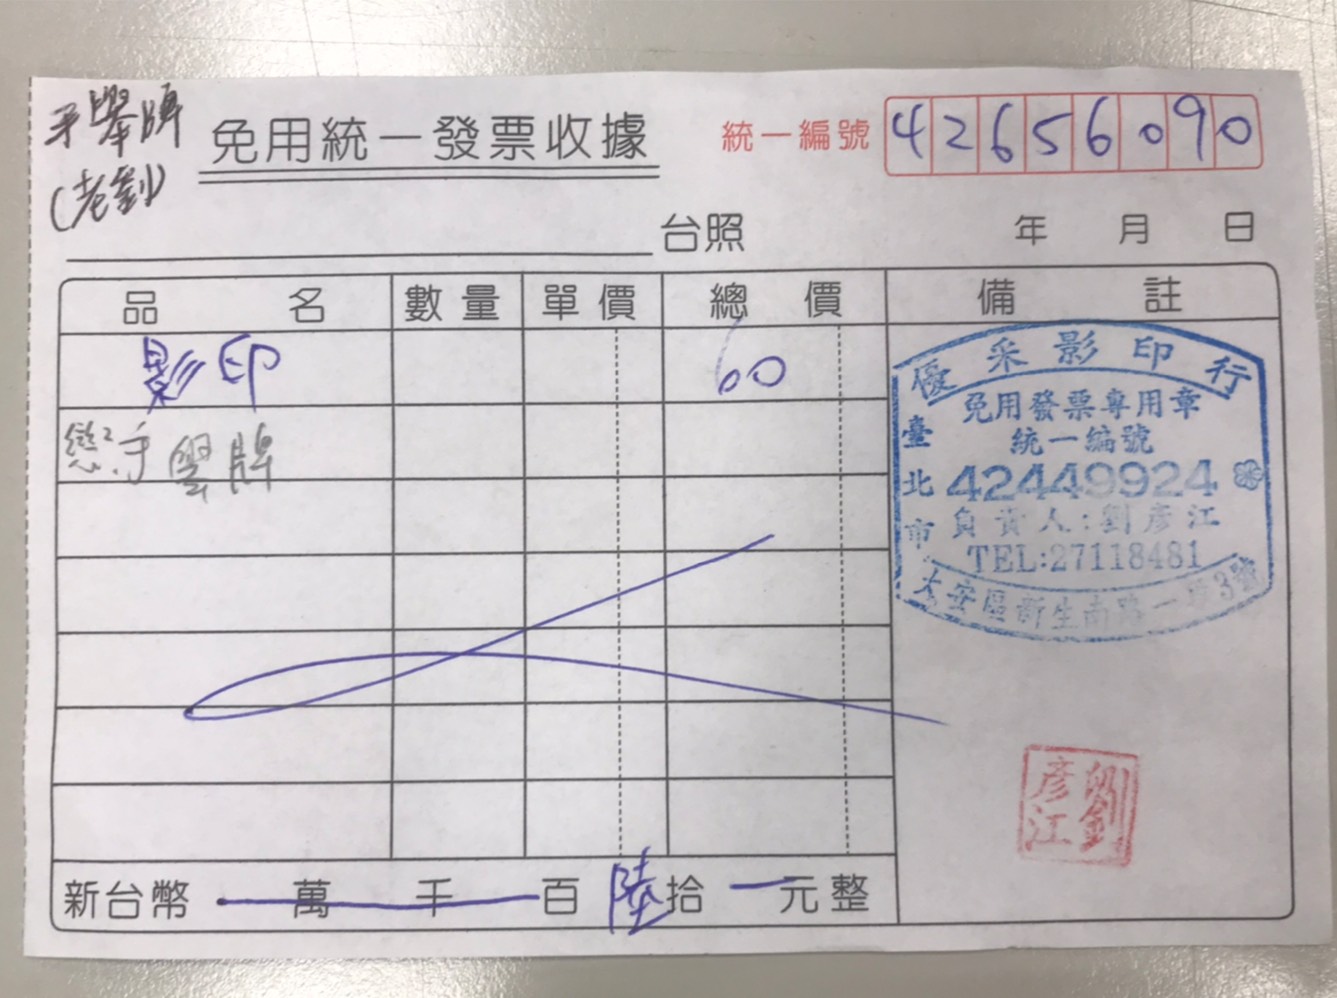 手舉牌
(老劉)
免用統一發票收據
統一編號 42656090
台照
年 月 日
品名 數量 單價 總價 備註
影印 60
手舉牌
優采影印行
免用發票專用章
統一編號
臺北市
42449924
負責人:劉彥江
TEL:27118481
大安區新生南路一段3號
劉彥江
新台幣 萬 千 百 陸拾 元整